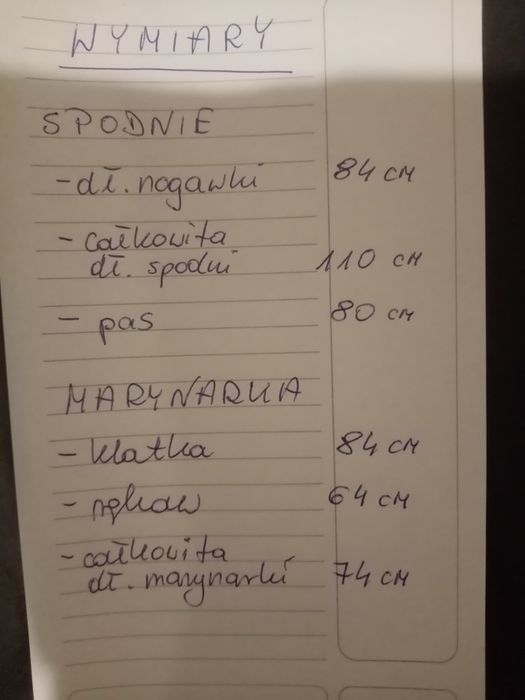 WYMIARY
SPODNIE
- dł. nogawki 84 cm
- całkowita
dł. spodni 110 cm
- pas 80 cm
MARYNARKA
- klatka 84 cm
- rękaw 64 cm
- całkowita
dł. marynarki 74 cm